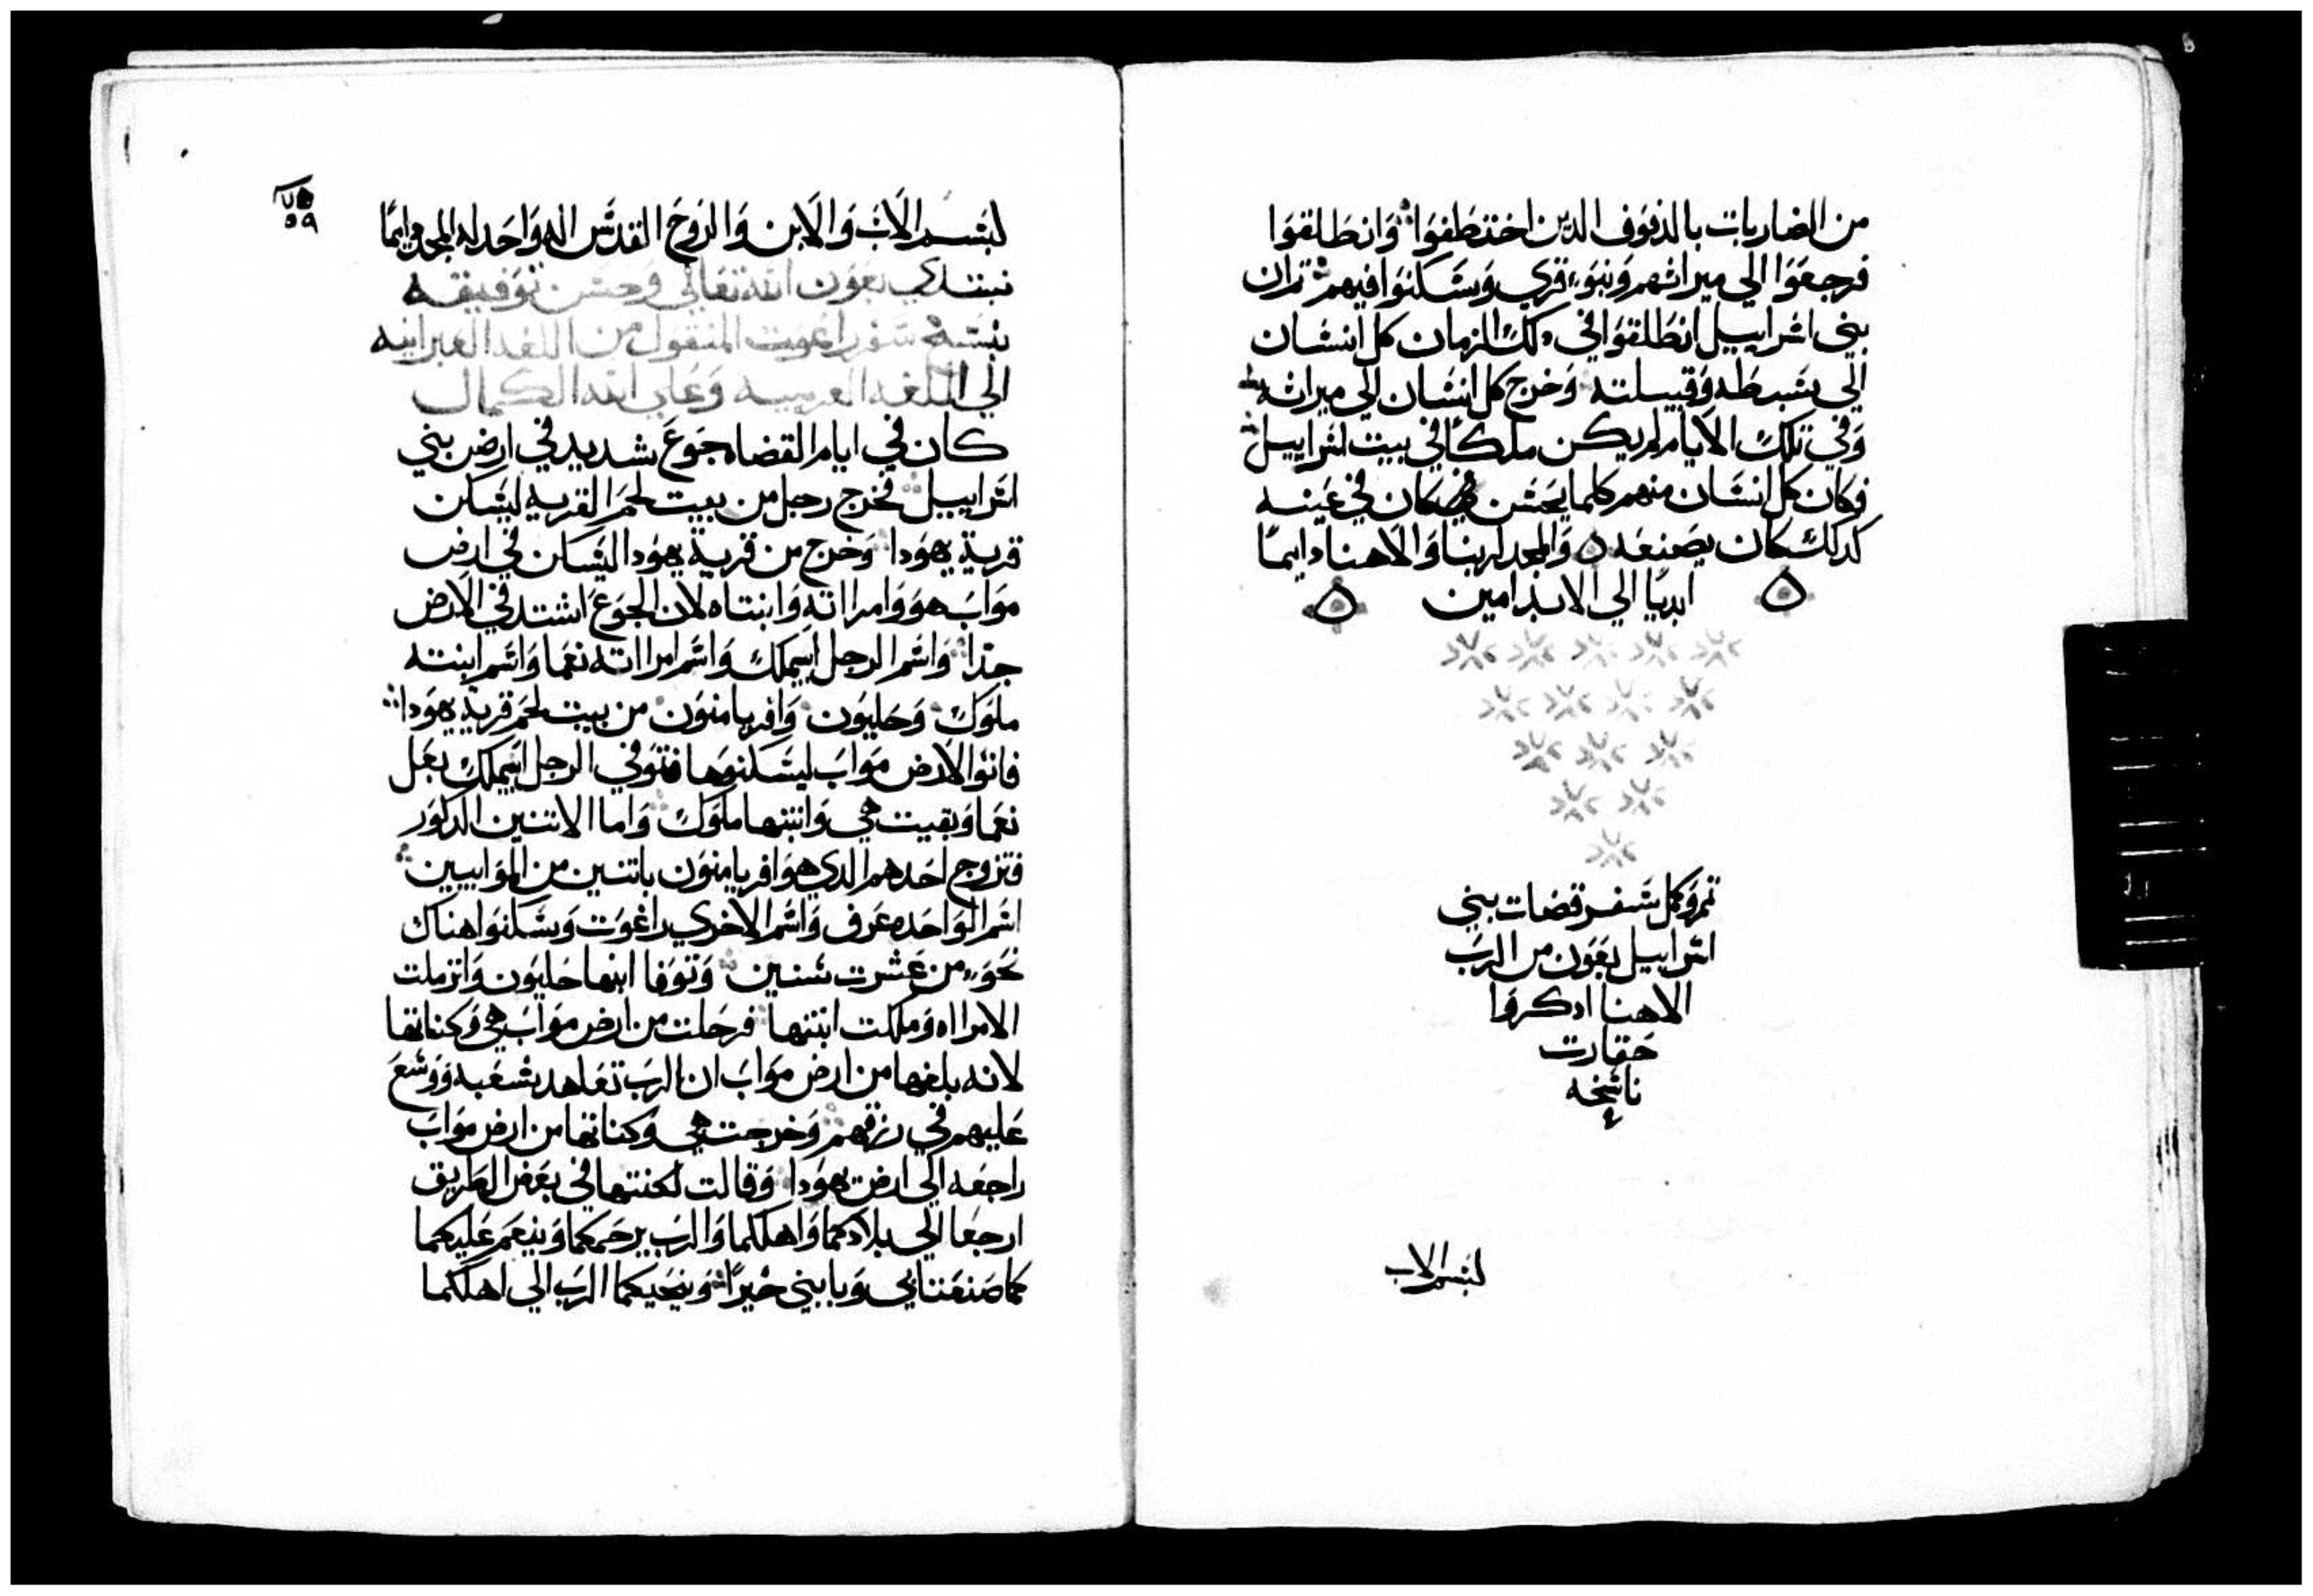 من الضاربات بالدفوف الدين اختطفوا وانطلقوا
فرجعوا الي ميراثهم وبنوء قري وسكنوا فيهم ثم ان
بني اسراييل انطلقوا في دلك الزمان كل انسان
الي سبطه وقبيلته وخرج كل انسان الي ميراثه
وفي تلك الايام لم يكن ملكا في بيت اسراييل
فكان كل انسان منهم كلما يحسن كان في عينه
كدلك كان يصنعه والمجد لربنا والاهنا دايما
ابديا الي الابد امين
تم وكمل سفر قضات بني
اسراييل بعون من الرب
الاهنا ادكروا
حقارت
ناسخه
لبسم الاب
٥٩
لبسم الاب والابن والروح القدس اله واحد له المجد دايما
نبتدي بعون الله تعالي وحسن توفيقه
بنسخ سفر راغوت المنقول من اللغه العبرانيه
الي اللغه العربيه وعلي الله الكمال
كان في ايام القضاه جوع شديد في ارض بني
اسراييل فخرج رجل من بيت لحم القريه ليسكن
قرية يهودا وخرج من قرية يهودا ليسكن في ارض
مواب هو وامرااته وابنتاه لان الجوع اشتد في الارض
جدا واسم الرجل ابيملك واسم امرااته نعما واسم ابنته
ملوك وحليون وافريامنون من بيت لحم قرية يهودا
فاتوا لارض مواب ليسكنوها فتوفي الرجل ابيملك بعل
نعما وبقيت هي وابنتها ملوك واما الاتنين الدكور
فتزوج احدهم الدي هو افريامنون باتنين من الموابيين
اسم الواحده عرف واسم الاخري راغوت وسكنوا هناك
نحوء من عشرت سنين وتوفا ابنها حليون وانزملت
الامرااه وملكت ابنتها فرحلت من ارض مواب هي وكناتها
لانه بلغها من ارض مواب ان الرب تعاهد شعبه ووسع
عليهم في رزقهم وخرجت هي وكناتها من ارض مواب
راجعه الي ارض يهودا وقالت لكنتها في بعض الطريق
ارجعا الي بلادكما واهلكما والرب يرحمكما وينعم عليكما
كما صنعتما بي وبابني خيرا وينجيكما الرب الي اهلكما